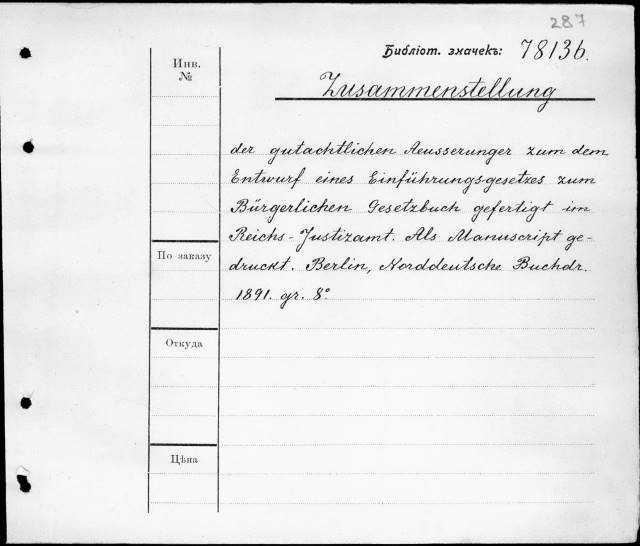 287
Библіот. значекъ: 7813б.
Инв.
№
Zusammenstellung
der gutachtlichen Aeusserunger zum dem
Entwurf eines Einführungsgesetzes zum
Bürgerlichen Gesetzbuch gefertigt im
Reichs-Justizamt. Als Manuscript ge-
druckt. Berlin, Norddeutsche Buchdr.
1891. gr. 8°
По заказу
Откуда
Цѣна